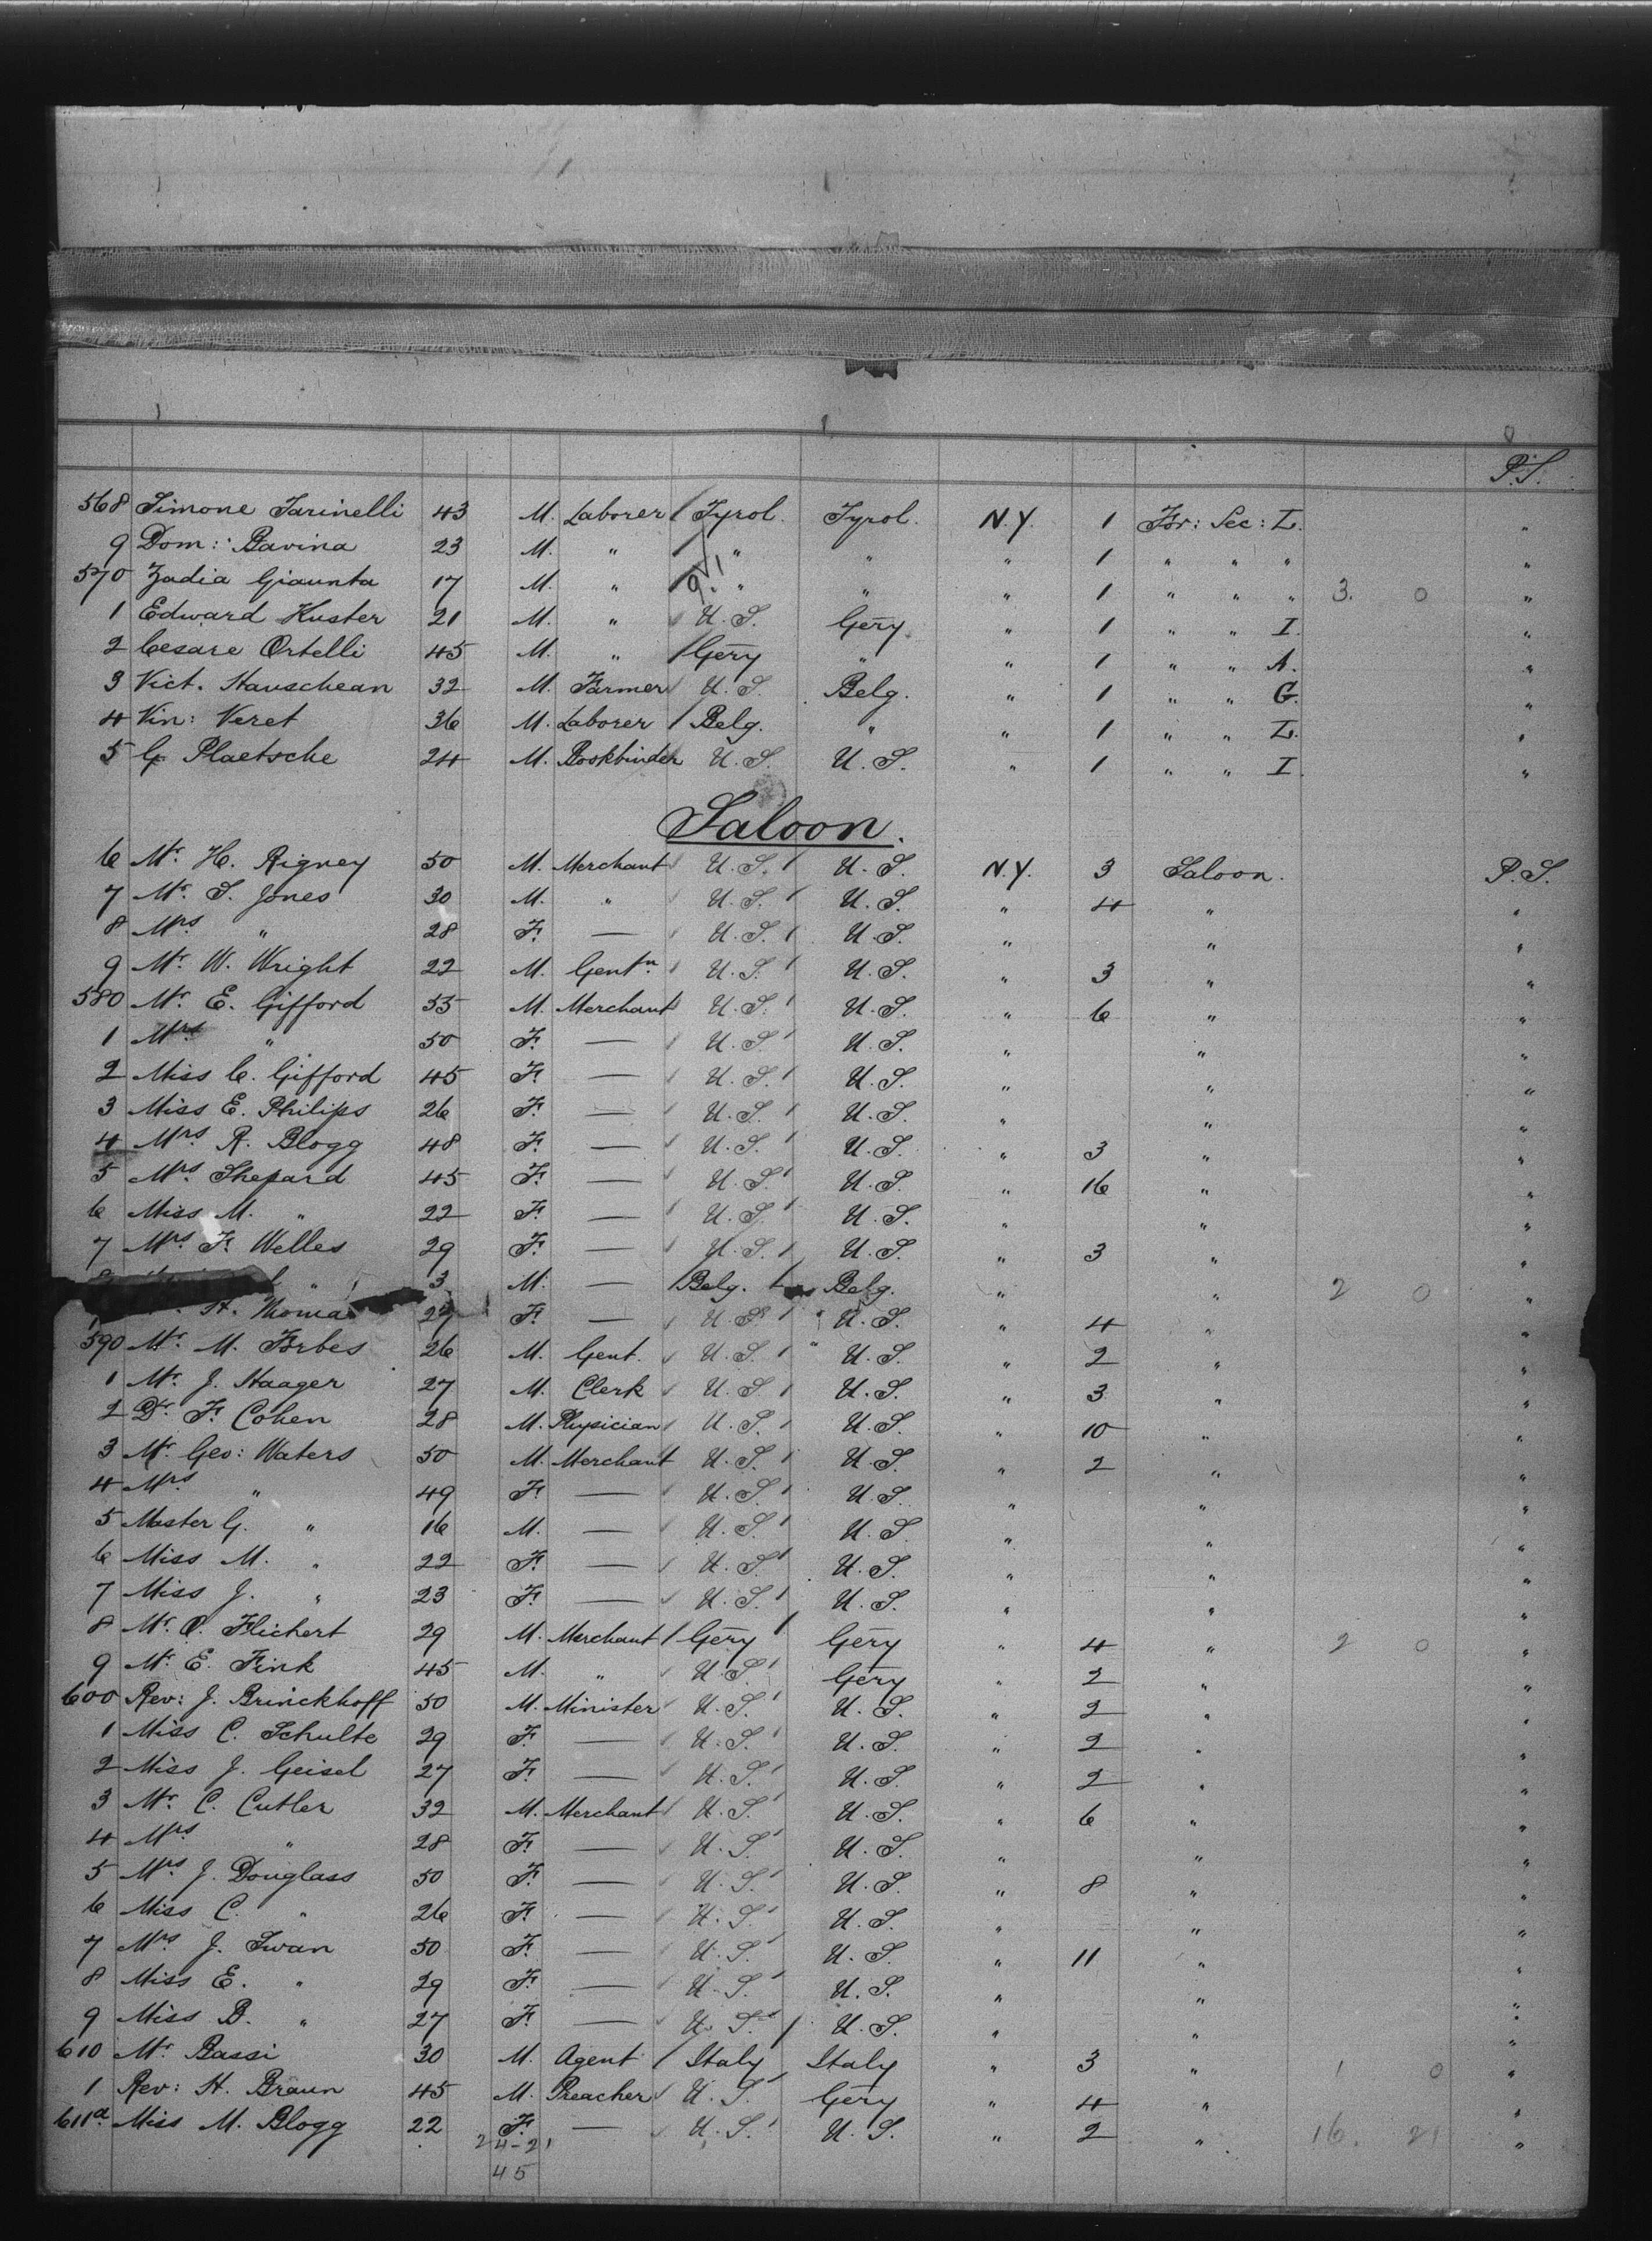 P.S.
568 Simone Tarinelli 43 M. Laborer Tyrol. Tyrol. N.Y. 1 For: Sec: L. "
9 Dom: Bavina 23 M. " " " " 1 " " " "
570 Zadia Giaunta 17 M. " " " " 1 " " " 3. 0 "
1 Edward Huster 21 M. " U.S. Gery. " 1 " " I. "
2 Cesare Ortelli 45 M. " Gery " " 1 " " A. "
3 Vict. Hauschean 32 M. Farmer U.S. Belg. " 1 " " G. "
4 Vin: Veret 36 M. Laborer Belg. " " 1 " " L. "
5 G. Plaetsche 24 M. Bookbinder U.S. U.S. " 1 " " I. "
Saloon.
6 Mr. H. Rigney 50 M. Merchant U.S. U.S. N.Y. 3 Saloon. P.S.
7 Mr. S. Jones 30 M. " U.S. U.S. " 4 " "
8 Mrs. " 28 F. — U.S. U.S. " " "
9 Mr. W. Wright 22 M. Gentn. U.S. U.S. " 3 " "
580 Mr. E. Gifford 55 M. Merchant U.S. U.S. " 6 " "
1 Mrs. " 50 F. — U.S. U.S. " " "
2 Miss C. Gifford 45 F. — U.S. U.S. " " "
3 Miss E. Philips 26 F. — U.S. U.S. " " "
4 Mrs R. Blogg 48 F. — U.S. U.S. " 3 " "
5 Mrs. Shepard 45 F. — U.S. U.S. " 16 " "
6 Miss M. " 22 F. — U.S. U.S. " " "
7 Mrs. F. Welles 29 F. — U.S. U.S. " 3 " "
" 3 M. — Belg. Belg. " " 2 0 "
H. Thomas 29 F. — U.S. U.S. " 4 " "
590 Mr. M. Forbes 26 M. Gent. U.S. U.S. " 2 " "
1 Mr. J. Haager 27 M. Clerk U.S. U.S. " 3 " "
2 Dr. F. Cohen 28 M. Physician U.S. U.S. " 10 " "
3 Mr. Geo: Waters 50 M. Merchant U.S. U.S. " 2 " "
4 Mrs " 49 F. — U.S. U.S. " " "
5 Master G. " 16 M. — U.S. U.S. " " "
6 Miss M. " 22 F. — U.S. U.S. " " "
7 Miss J. " 23 F. — U.S. U.S. " " "
8 Mr. O. Flichert 29 M. Merchant Gery Gery " 4 " 2 0 "
9 Mr. E. Fink 45 M. " U.S. Gery " 2 " "
600 Rev: J. Brinckhoff 50 M. Minister U.S. U.S. " 2 " "
1 Miss C. Schulte 29 F. — U.S. U.S. " 2 " "
2 Miss J. Geisel 27 F. — U.S. U.S. " 2 " "
3 Mr. C. Cutler 32 M. Merchant U.S. U.S. " 6 " "
4 Mrs. " 28 F. — U.S. U.S. " " "
5 Mrs. J. Douglass 50 F. — U.S. U.S. " 8 " "
6 Miss C. " 26 F. — U.S. U.S. " " "
7 Mrs. J. Swan 50 F. — U.S. U.S. " 11 " "
8 Miss E. " 29 F. — U.S. U.S. " " "
9 Miss B. " 27 F. — U.S. U.S. " " "
610 Mr. Bassi 30 M. Agent Italy Italy " 3 " 1 0 "
1 Rev: H. Braun 45 M. Preacher U.S. Gery " 4 " "
611a. Miss M. Blogg 22 F. — U.S. U.S. " 2 " 16. 21 "
24-21
45